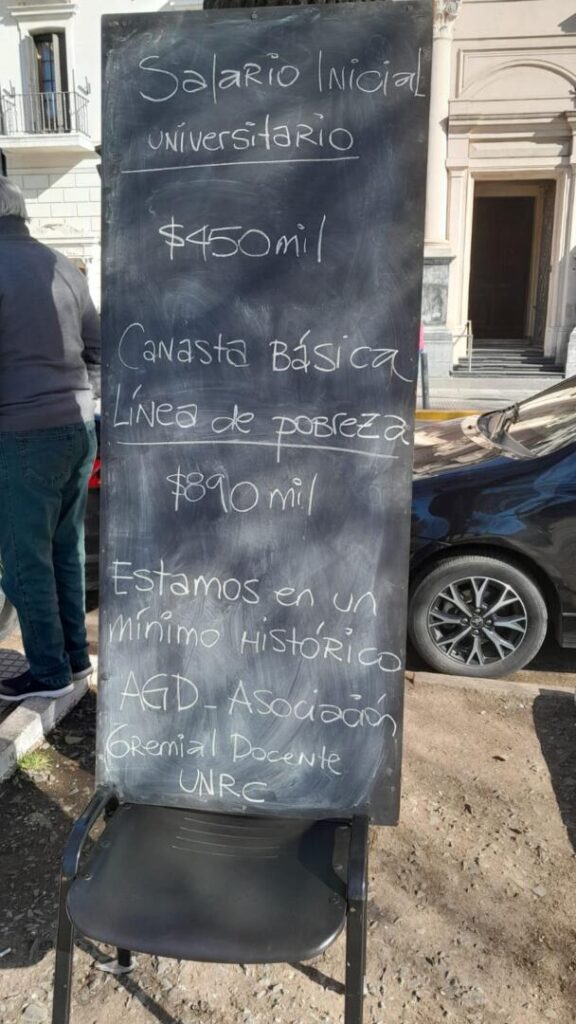 Salario Inicial
universitario
$450 mil
Canasta Básica
Línea de pobreza
$890 mil
Estamos en un
mínimo HISTÓRICO
AGD - Asociación
Gremial Docente
UNRC